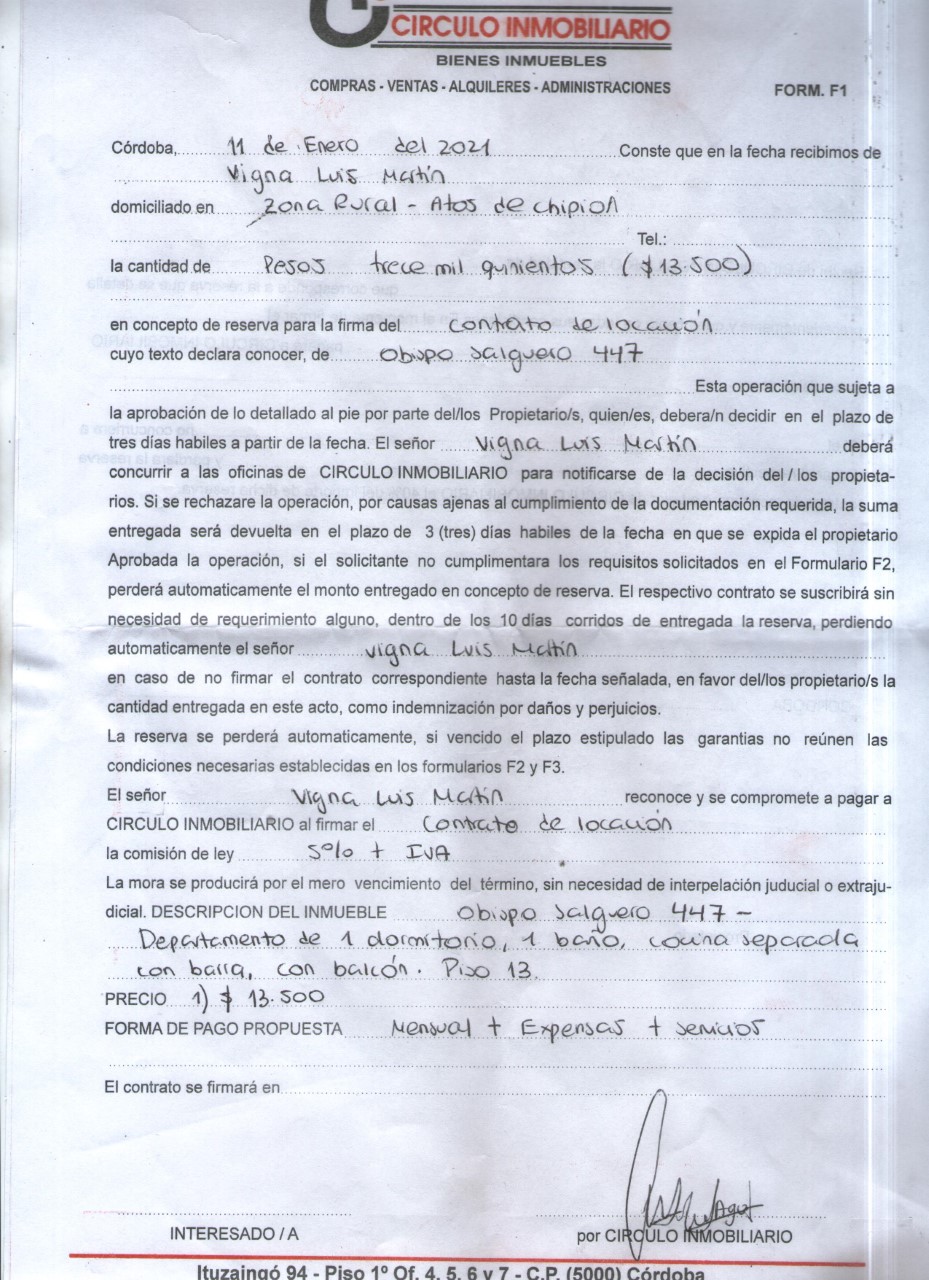 CIRCULO INMOBILIARIO
BIENES INMUEBLES
COMPRAS - VENTAS - ALQUILERES - ADMINISTRACIONES
FORM. F1
Córdoba, 11 de Enero del 2021 Conste que en la fecha recibimos de
Vigna Luis Martín
domiciliado en Zona Rural - Atos de chipion
Tel.:
la cantidad de Pesos trece mil quinientos ($13.500)
en concepto de reserva para la firma del contrato de locación
cuyo texto declara conocer, de Obispo Salguero 447
Esta operación que sujeta a
la aprobación de lo detallado al pie por parte del/los Propietario/s, quien/es, debera/n decidir en el plazo de
tres días habiles a partir de la fecha. El señor Vigna Luis Martín deberá
concurrir a las oficinas de CIRCULO INMOBILIARIO para notificarse de la decisión del / los propieta-
rios. Si se rechazare la operación, por causas ajenas al cumplimiento de la documentación requerida, la suma
entregada será devuelta en el plazo de 3 (tres) días habiles de la fecha en que se expida el propietario
Aprobada la operación, si el solicitante no cumplimentara los requisitos solicitados en el Formulario F2,
perderá automaticamente el monto entregado en concepto de reserva. El respectivo contrato se suscribirá sin
necesidad de requerimiento alguno, dentro de los 10 días corridos de entregada la reserva, perdiendo
automaticamente el señor Vigna Luis Martín
en caso de no firmar el contrato correspondiente hasta la fecha señalada, en favor del/los propietario/s la
cantidad entregada en este acto, como indemnización por daños y perjuicios.
La reserva se perderá automaticamente, si vencido el plazo estipulado las garantias no reúnen las
condiciones necesarias establecidas en los formularios F2 y F3.
El señor Vigna Luis Martín reconoce y se compromete a pagar a
CIRCULO INMOBILIARIO al firmar el Contrato de locación
la comisión de ley 5% + IVA
La mora se producirá por el mero vencimiento del término, sin necesidad de interpelación juducial o extraju-
dicial. DESCRIPCION DEL INMUEBLE Obispo Salguero 447 -
Departamento de 1 dormitorio, 1 baño, cocina separada
con barra, con balcón. Piso 13.
PRECIO 1) $ 13.500
FORMA DE PAGO PROPUESTA Mensual + Expensas + servicios
El contrato se firmará en
INTERESADO / A
por CIRCULO INMOBILIARIO
Ituzaingó 94 - Piso 1º Of. 4, 5, 6 y 7 - C.P. (5000) Córdoba